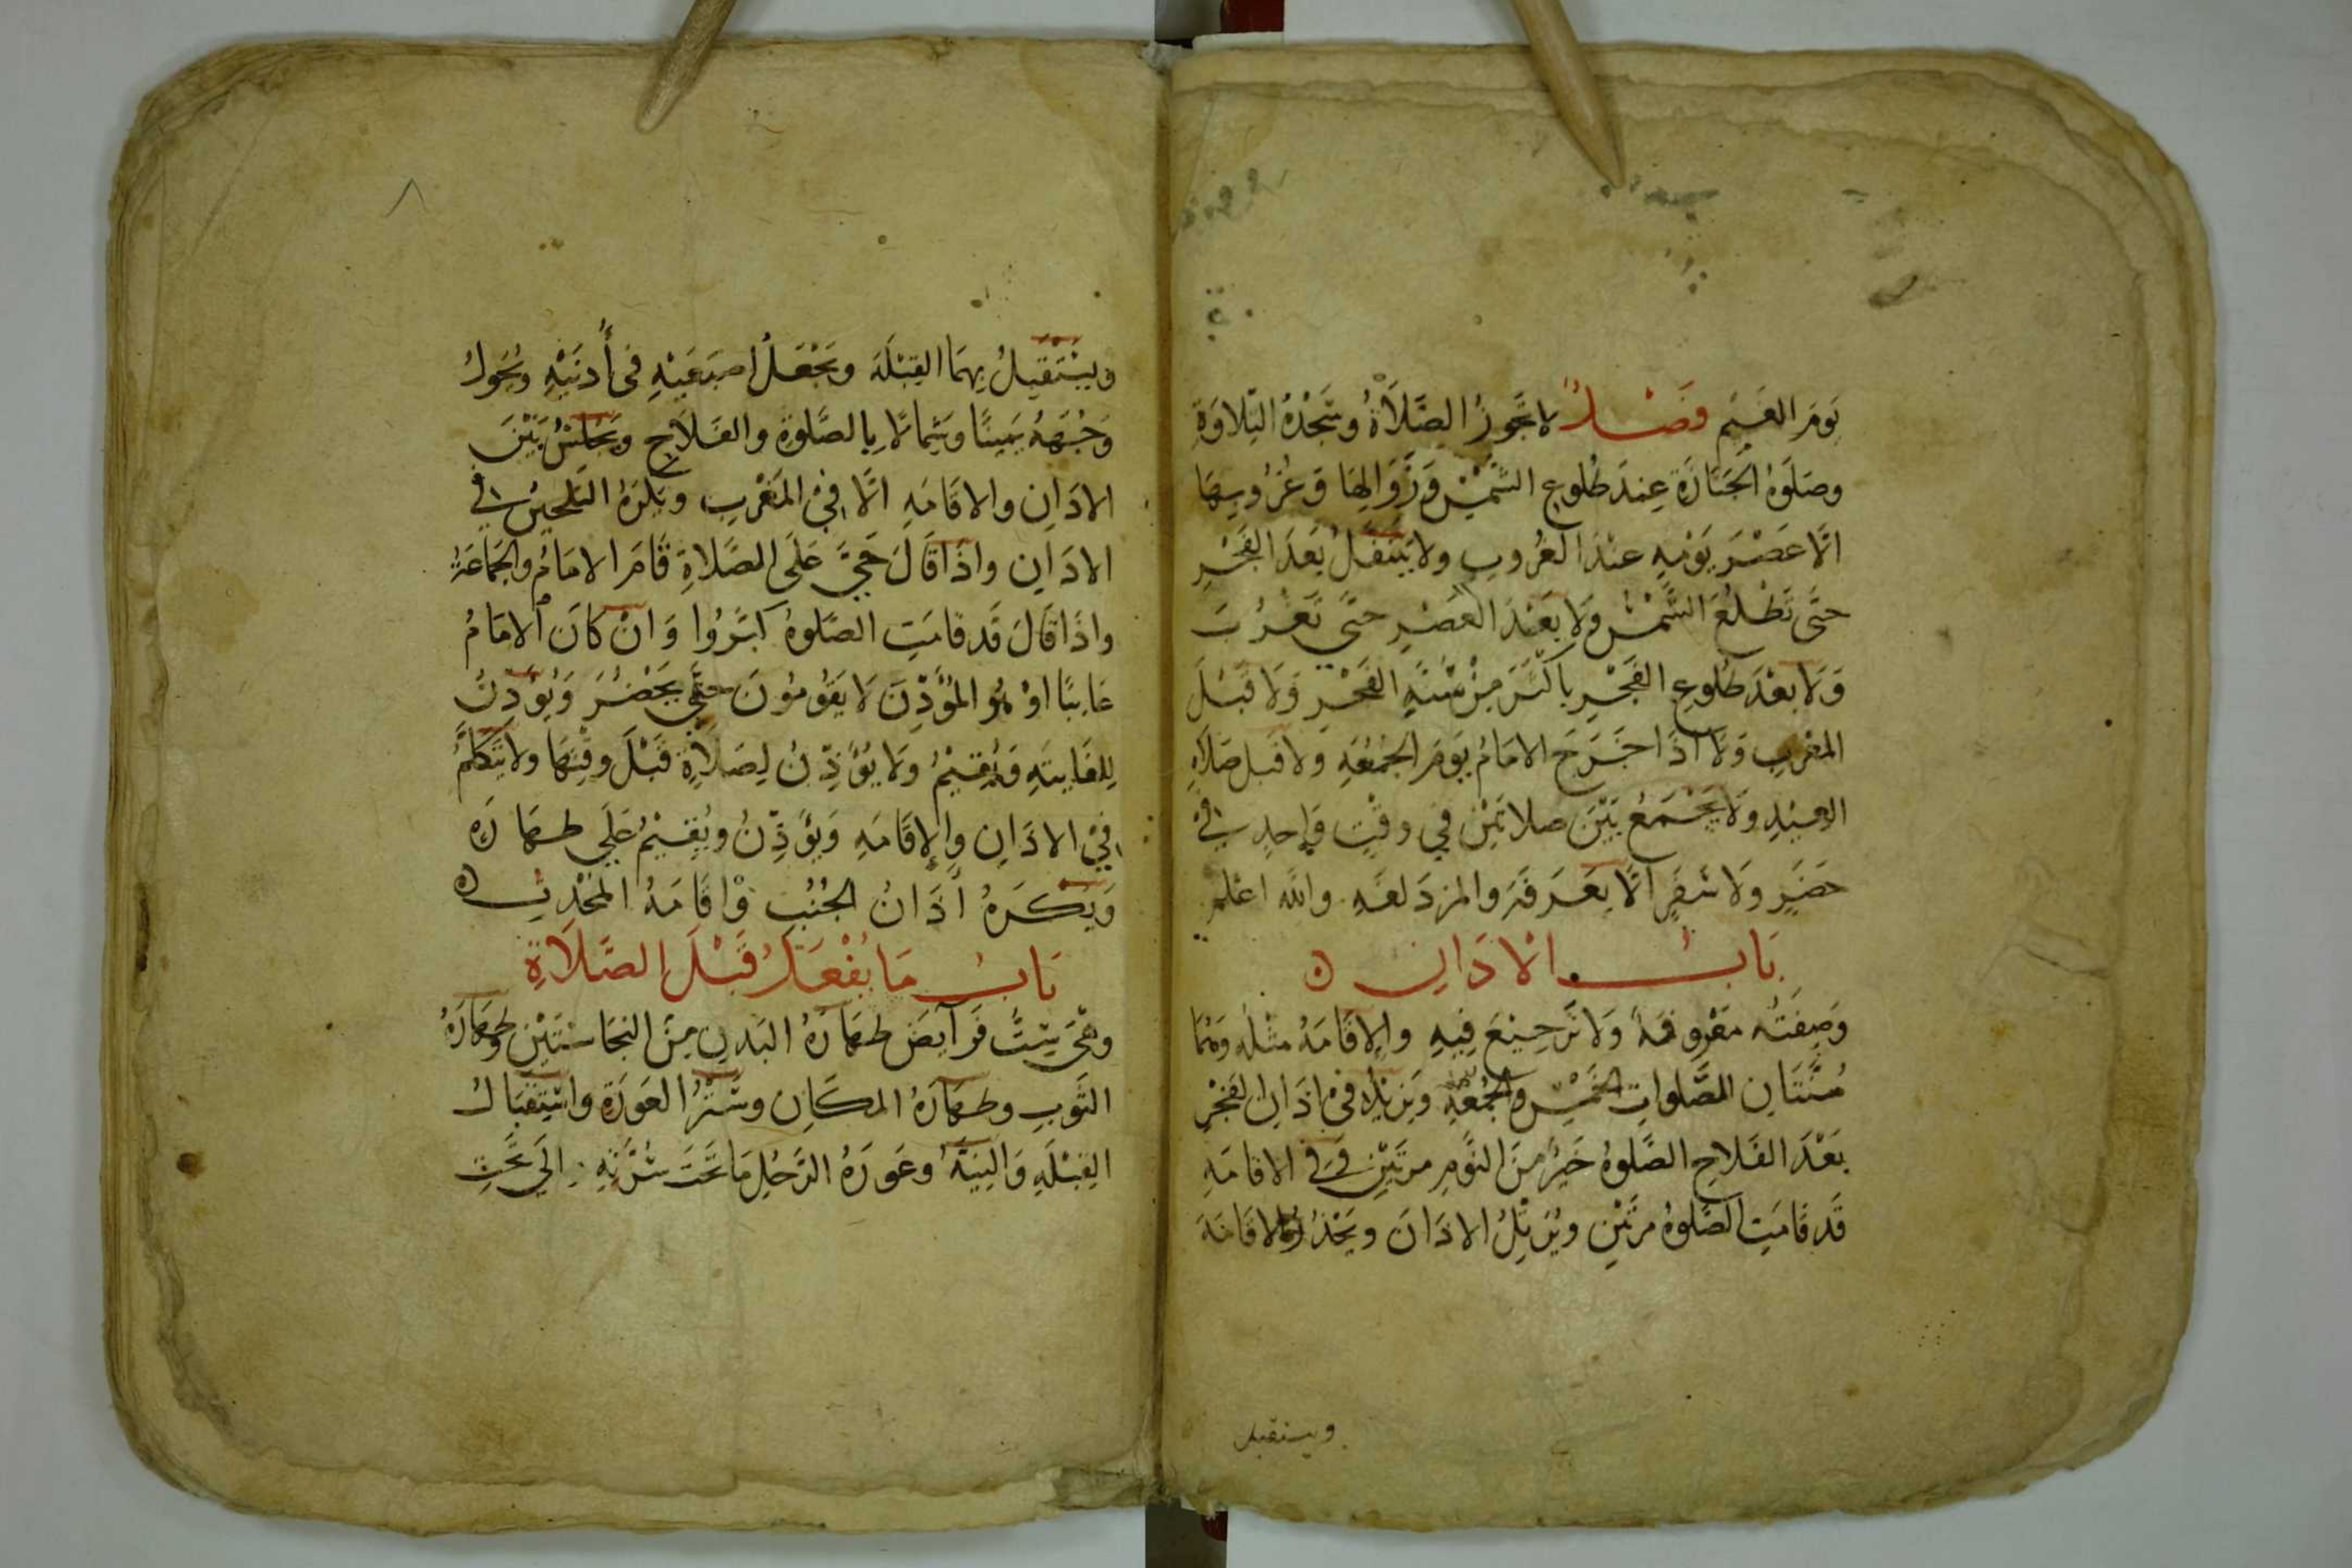 يَومَ الغَيم فَصْلٌ لا تجُوزُ الصَّلَاةُ وسَجْدَةُ التِلاوَةِ
وصَلوةُ الجَنَازَةِ عِندَ طُلوعِ الشَّمْسِ وَزَوَالِهَا وَغرُوبِهَا
الَّا عَصْرَ يَوْمِهِ عنْدَ الغُروبِ ولا يَتَنفّلُ بَعدَ الفَجْرِ
حتَّى تَطْلُعَ الشَّمْسُ وَلَا بَعْدَ العَصْرِ حتَّى تَغْرُبَ
وَلَا بعْدَ طُلوعِ الفَجْرِ باكثَرَ مِنْ سُنَّةِ الفَجْرِ وَلَا قَبْلَ
المغربِ وَلَا اذَا خَرَجَ الامَامُ يَومَ الجُمْعَةِ ولا قبل صَلَاةِ
العِيْدِ وَلَا يَجْمَعُ بَيْنَ صلاتَيْن فِي وقْتٍ وَاحِدٍ في
حَضَرٍ وَلَا سَفَرٍ الَّا بِعَرَفَةَ والمزدَلفَةِ والله اعْلم
بَابُ الاذَانِ
وَصِفَتُه مَعْرُوفَةٌ وَلَا تَرجِيْعَ فِيهِ والاِقَامَةُ مثْلُه وَهُمَا
سُنَّتَانِ للصَّلواتِ الخَمْسِ والجُمُعَةِ وَيَزِيْدُ في اذَانِ الفَجْرِ
بَعْدَ الفَلاحِ الصَّلوةُ خَيرٌ منَ النَّومِ مرتَيْنِ وَفي الاقامَةِ
قَد قَامَتِ الصَّلوةُ مرَّتَيْنِ ويُرَتِّلُ الاذَانَ ويَحْدُرُ الاقَامَةَ
ويستقبل
ويَسْتَقْبِلُ بِهِمَا القِبْلَةَ ويَجْعَلُ اصبَعَيْهِ في أُذنَيْهِ ويُحَوِلُ
وَجْهَهُ يَمِينًا وشِمالًا بِالصَّلوةِ والفَلَاحِ ويَجْلسُ بَيْنَ
الاذَانِ والاقَامَةِ الَّا فِيْ المَغْربِ ويُكرَهُ التَلْحِينُ في
الاذَانِ واذَا قَالَ حَيَّ عَلَى الصَّلاةِ قَامَ الامَامُ والجَمَاعَةُ
واذَا قَالَ قَد قامَتِ الصَّلوةُ كبَّرُوا وَانْ كَانَ الامَامُ
غَايبًا اوْ هُو المُؤَذِّنَ لَا يَقُومُونَ حتَّى يَحْضُرَ وَيُؤذِنُ
لِلفَايتَةِ وَيُقِيْمُ ولَا يُؤَذِّنُ لِصَلَاةٍ قَبْلَ وقْتِهَا ولا يَتَكلَّمُ
فِيْ الاذَانِ والاِقَامَةِ وَيُؤَذِّنُ ويُقِيْمُ عَلَي طَهَارَةٍ
وَيُكْرَهُ أَذَانُ الجُنُبِ وَاقَامَةُ المحْدِثِ
بَابُ مَا يُفْعَلُ قَبْلَ الصَّلَاةِ
وهْيَ سِتُّ فَرَايضَ طَهَارَةُ البَدنِ مِنَ النجَاسَتَيْنِ وطَهَارَةُ
الثَّوبِ وطَهَارَةُ المكَانِ وسَتْرُ العَورَةِ واسْتِقبَالُ
القِبْلَةِ وَالنِيَّةُ وعَورَةُ الرَّجُلِ مَا تَحْتَ سُرَّتِهِ اِلَي تَحْتِ